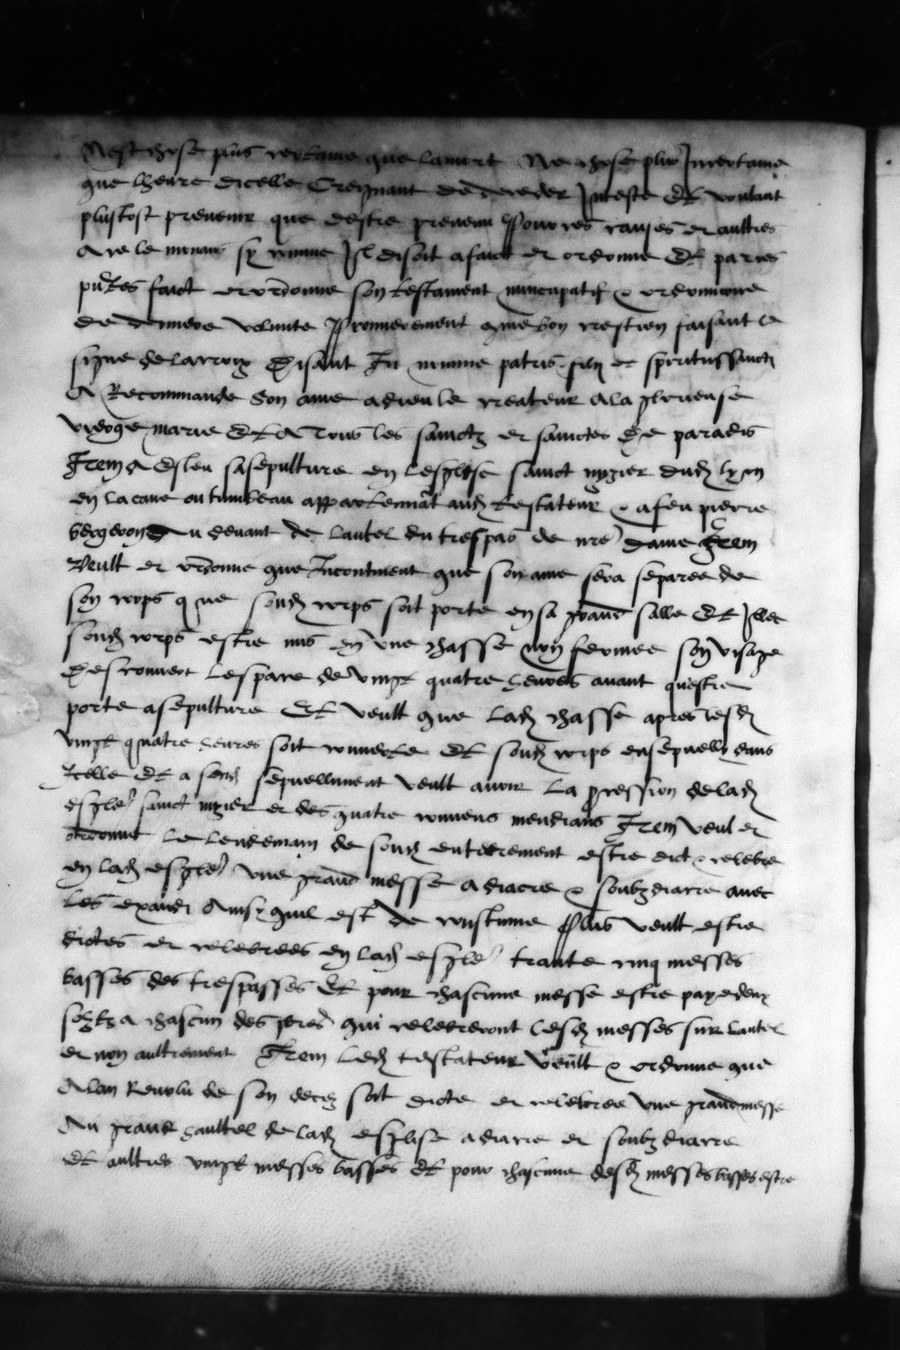 Nest chose plus certaine que la mort Ne chose plus Incertaine
que lheure dicelle Creignant de deceder Inteste Et voulant
plustost prevenir que destre prevenu Pour ces causes et aultres
A ce le mouans sy comme Il disoit a faict et ordonne Et par ces
pntes faict et ordonne son testament nuncupatif & ordonnance
de derniere volunte Premierement comme bon crestien faisant le
signe de la croix Disant In nomine patris filii et spiritussancti
A Recommande son ame a dieu le createur A la glorieuse
vierge marie Et A tous les sainctz et sainctes De paradis
Item A esleu sa sepulture en lesglise sainct nizier dud lyon
en la cave ou tumbeau appartenant aud testateur & a feu pierre
bergeron Au devant de lautel du trespas de nre dame Item
Veult et ordonne que Incontinent que son ame sera separee de
son corps que soud corps soit porte en sa grand salle Et Illec
soud corps estre mis en une chasse non fermee son visaige
Descouvert Lespace de vingt quatre heures avant questre
porte a sepulture Et veult que lad chasse apres lesd
vingt quatre heures soit couverte Et soud corps ensepvely dans
Icelle Et a send sepvelliment veult avoir La procession de lad
esgle sainct nizier et des quatre convens mendians Item veul et
ordonne Le lendemain de soud enterrement estre dict & celebre
en lad esgle une grand messe a diacre & soubzdiacre avec
Les exaudi Ainsy quil est de coustume Plus veult estre
dictes et celebrees en lad esgle trante cinq messes
basses des trespasses Et pour chascune messe estre paye deux
solz tz A chascun des pbres qui celebreront lesd messes sur lautel
et non aultrement Item Led testateur veult & ordonne que
A lan Revolu de son deces soit dicte et celebree une grand messe
Au grand haultel de lad esglise a diacre et soubz diacre
Et aultres vingt messes basses Et pour chascune desd messes basses estre